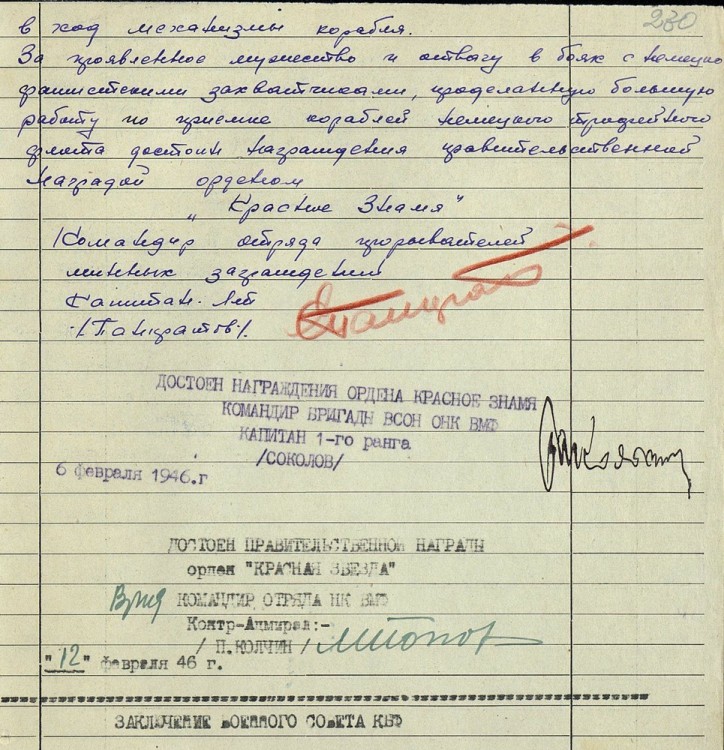 230
в ход механизмы корабля.
За проявленное мужество и отвагу в боях с немецко
фашистскими захватчиками, проделанную большую
работу по приемке кораблей немецкого трофейного
флота достоин награждения правительственной
наградой орденом
„Красное Знамя"
Командир отряда прорывателей
минных заграждений
Капитан-Лт
/Панкратов/.
ДОСТОЕН НАГРАЖДЕНИЯ ОРДЕНА КРАСНОЕ ЗНАМЯ
КОМАНДИР БРИГАДН ВСОН ОНК ВМФ
КАПИТАН 1-го ранга
/СОКОЛОВ/
6 февраля 1946.г
ДОСТОЕН ПРАВИТЕЛЬСТВЕННОЙ НАГРАДЫ
орден "КРАСНАЯ ЗВЕЗДА"
Врид КОМАНДИР ОТРЯДА НК ВМФ
Контр-Адмирал:-
/ П.КОЛЧИН /
"12" февраля 46 г.
ЗАКЛЮЧЕНИЕ ВОЕННОГО СОВЕТА КБФ